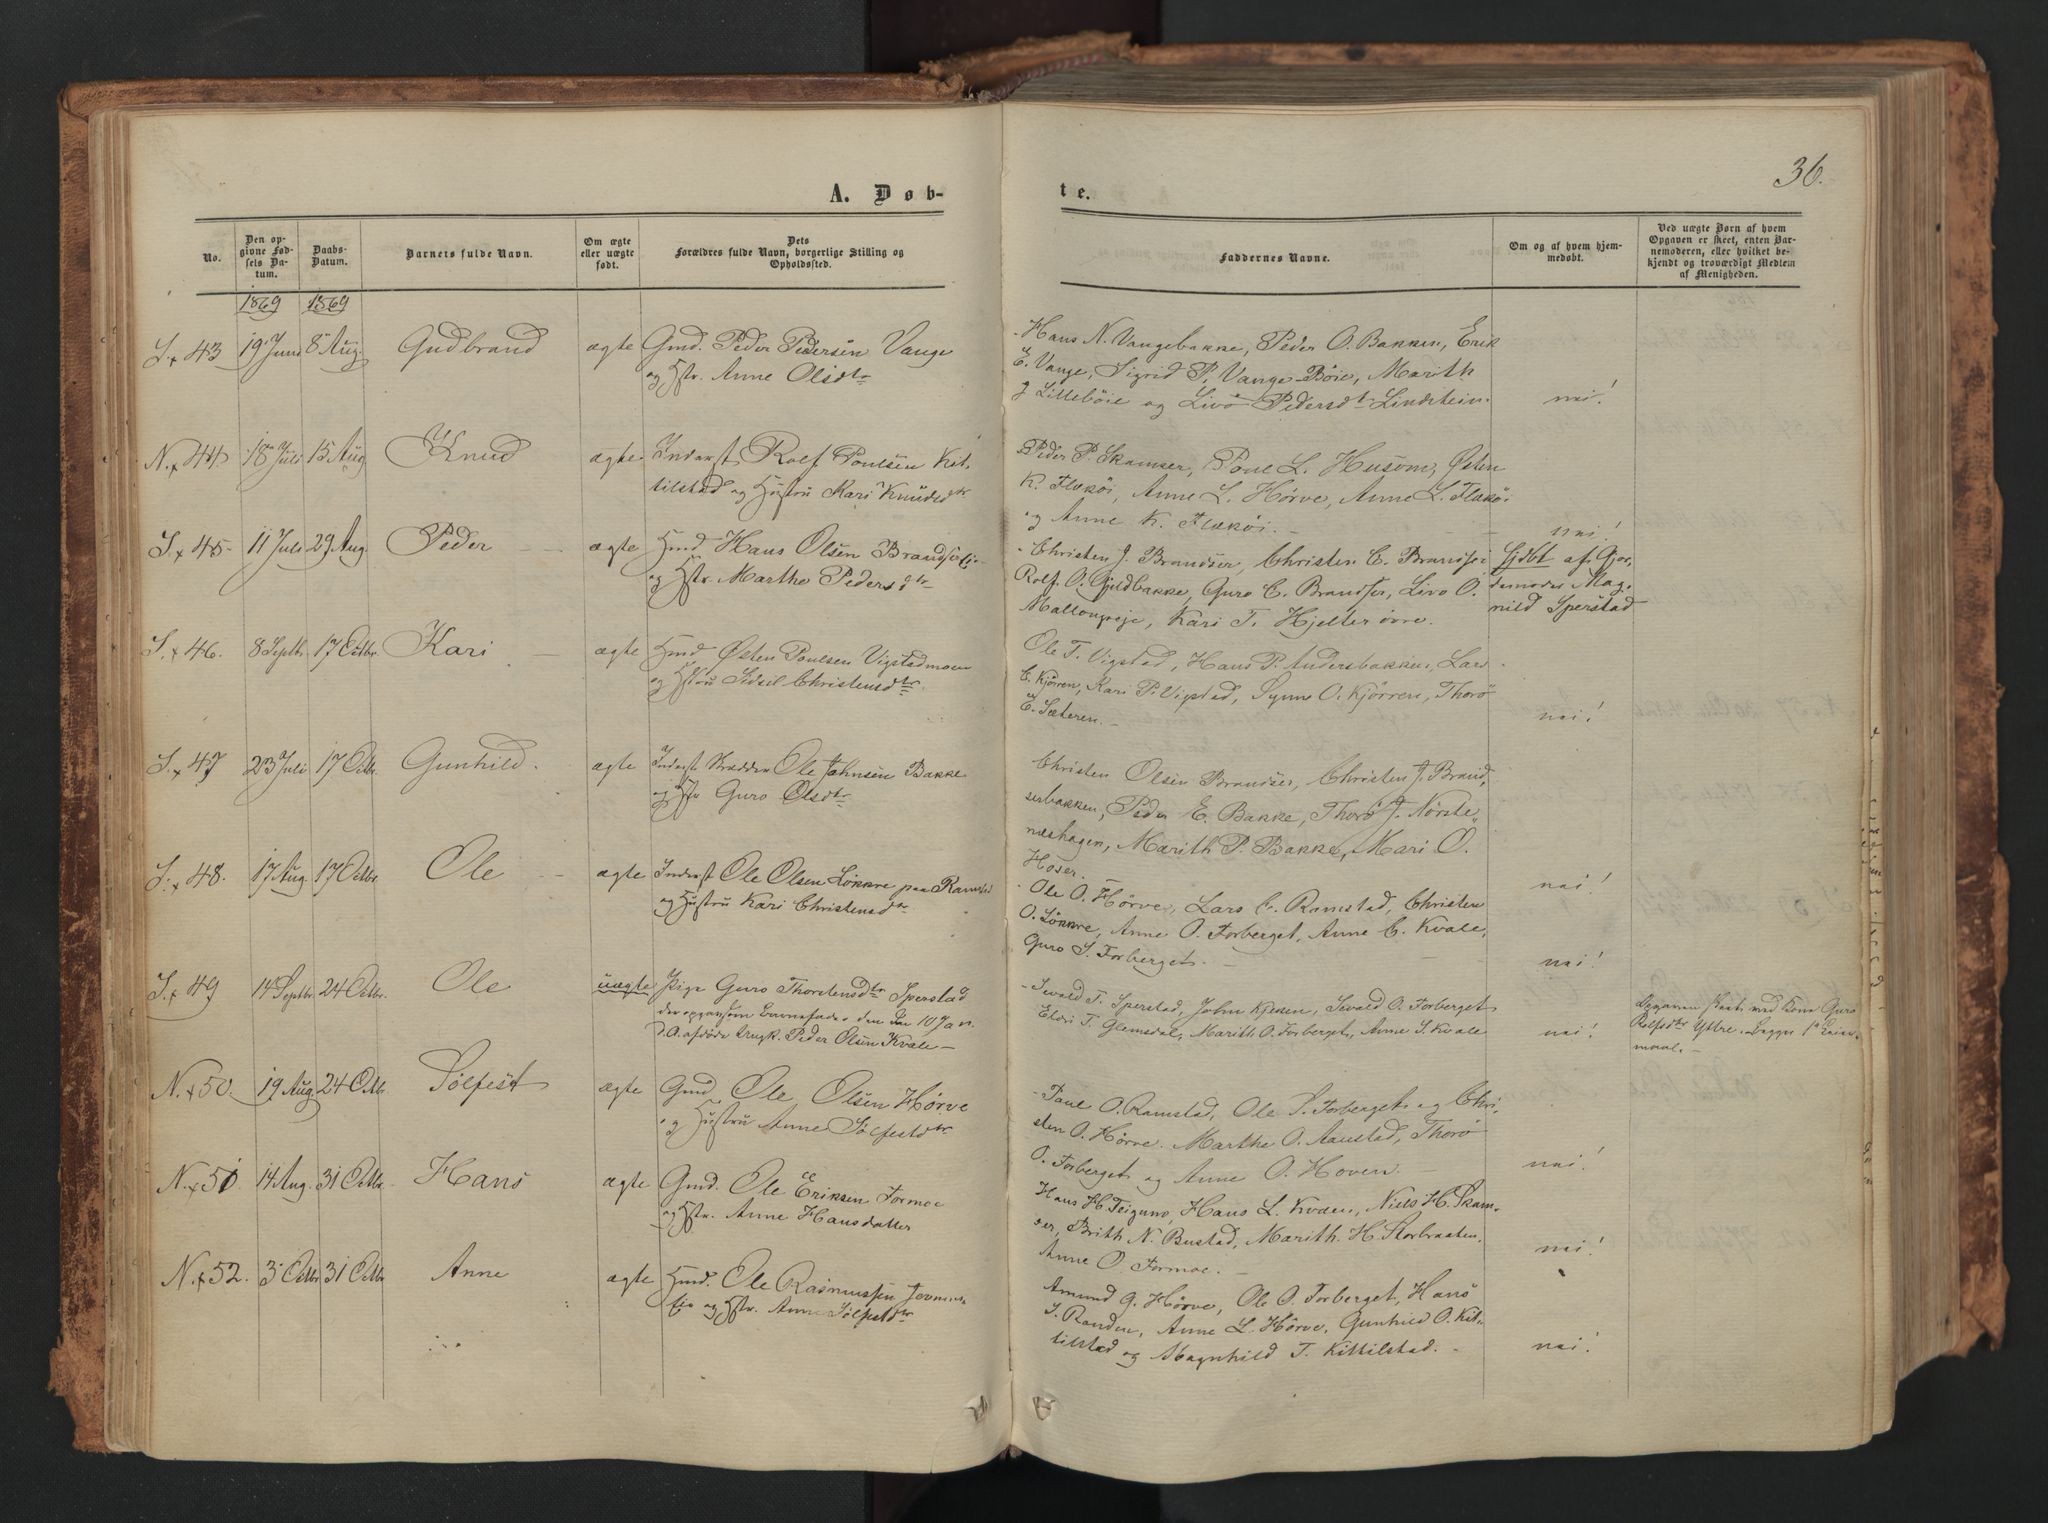 36.
A. Døbte.
No.
Den opgivne Fødsels Datum.
Daabs-Datum.
Barnets fulde Navn.
Om ægte eller uægte født.
Dets Forældres fulde Navn, borgerlige Stilling og Opholdssted.
Faddernes Navne.
Om og af hvem hjemmedøbt.
Ved uægte Børn af hvem Opgaven er skeet, enten Barnemoderen, eller hvilket bekjendt og troværdigt Medlem af Menigheden.
1869 1869
S. 43 19 Juni 8 Aug. Gudbrand ægte Gmd. Peder Pedersen Vange
og Hstr. Anne Olsdtr
Hans N. Vangebakke, Peder O. Bakken, Erik
E. Vange, Sigrid P. Vange Böie, Marith
J Lilleböie og Livö Pedersdt Lindstein. nei!
N. 44. 18 Juli 15 Aug Knud ægte Inderst Rolf Poulsen Kit-
tilstad og Hustru Kari Knudsdtr
Peder P. Skamser, Poul L. Husom, Østen
K. Flækøi, Anne L. Hörve, Anne L. Flækøi
og Anne K. Flækøi. nei!
S. 45 11 Juli 29 Aug. Peder ægte Hmd Hans Olsen Brandserei
og Hstr. Marthe Pedersdtr
Christen J. Brandser, Christen C. Brandser
Rolf O. Gjeldbakke, Guro C. Brandser, Livo O.
Mallongseje, Kari T. Hjelter övre.
Hjdbt af Gjor-
demoder Mag-
nild Sperstad
S. 46. 8 Septb. 17 Octbr. Kari ægte Hmd Østen Poulsen Vigstadmoen
og Hstru Sidsel Christensdtr.
Ole T. Vigstad, Hans P. Andersbakken, Lars
E. Kjörren, Kari P. Vigstad, Synne O. Kjörren, Thorö
E. Sæteren. nei!
S. 47 23 Juli 17 Octbr. Gunhild. ægte Inderst Skrædder Ole Johnsen Bakke
og Hstr Guro Olsdtr
Christen Olsen Brandser, Christen J. Brand-
serbakken, Peder E. Bakke, Thorö J. Nörste-
næshagen, Marith P. Bakke, Mari O.
Höser. nei!
S. 48. 17 Aug. 17 Octbr. Ole ægte Inderst Ole Olsen Lökkre paa Ramstad
og Hustru Kari Christensdtr
Ole O. Hörve, Lars C. Ramstad, Christen
O. Lökkre, Anne O. Forberget, Anne C. Kvale,
Guro S. Forberget. nei!
S. 49 14 Septbr. 24 Octbr. Ole uægte Pige Guro Thorstensdtr Sperstad
der opgav som Barnefader den den 10 Jan.
d. A. afdöde Ungk. Peder Olsen Kvale
Sevald T. Sperstad, John Kjesen, Sevald O. Forberget
Eldri T. Glemsdal, Marith O. Forberget, Anne S. Kvale nei!
Opgaven skeet ved Kone Guro
Rolfsdtr Yttre
N. 50. 19 Aug. 24 Octbr Sölfest ægte Gmd. Ole Olsen Hörve
og Hustru Anne Sölfestdtr
Poul O. Ramstad, Ole S. Forberget og Chri-
sten O. Hörve. Marthe O. Aanstad, Thorö
O. Forberget og Anne O. Hoven nei!
N. 51. 14 Aug. 31 Octbr. Hans ægte Gmd. Ole Eriksen Formoe
og Hstr. Anne Hansdatter
Hans H. Teigum, Hans L. Kvaen, Niels H. Skam-
ser, Brith N. Bustad, Marith H. Storbraaten,
Anne O. Formoe. nei!
N. 52. 3 Octbr 31 Octbr Anne ægte Hmd. Ole Rasmussen
og Hstr. Anne Sölfestdtr
Amund G. Hörve, Ole O. Forberget, Hans
T. Randen, Anne L. Hörve, Gunhild O. Kit-
tilstad og Magnhild T. Kittilstad. nei!